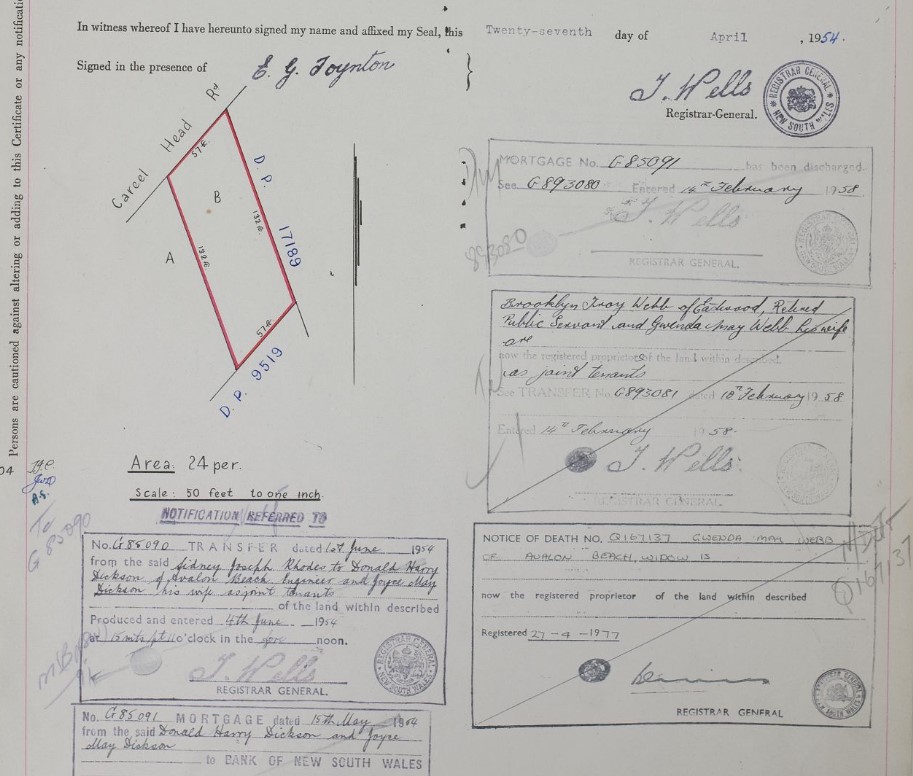 Persons are cautioned against altering or adding to this Certificate or any notificati
In witness whereof I have hereunto signed my name and affixed my Seal, this
Twenty-seventh day of April , 1954.
Signed in the presence of
E. G. Toynton
J. Wells
Registrar-General.
REGISTRAR GENERAL
NEW SOUTH WALES
Carcel Head Rd
57ft.
D. P. 17189
B
132ft.
A
132ft.
57ft.
D. P. 9519
Area: 24 per.
Scale: 50 feet to one inch.
NOTIFICATION REFERRED TO
To
G 85090
No. G85090 TRANSFER dated 1st June 1954
from the said Sidney Joseph Rhodes to Donald Harry
Dickson of Avalon Beach Engineer and Joyce May
Dickson his wife as joint tenants
of the land within described
Produced and entered 4th June 1954
at 15 mts pt 11 o'clock in the fore noon.
J. Wells
REGISTRAR GENERAL.
REGISTRAR GENERAL
NEW SOUTH WALES
No. G85091 MORTGAGE dated 15th May 1954
from the said Donald Harry Dickson and Joyce
May Dickson
to BANK OF NEW SOUTH WALES
MORTGAGE No. G85091 has been discharged.
See G893080 Entered 14th February 1958
J. Wells
REGISTRAR GENERAL.
893080
Brooklyn Troy Webb of Eastwood, Retired
Public Servant and Gwenda May Webb his wife
are
now the registered proprietors of the land within described.
as joint tenants
See TRANSFER No. G893081 dated 10th February 1958
Entered 14th February 1958.
J. Wells
REGISTRAR GENERAL
NOTICE OF DEATH NO. Q167137 GWENDA MAY WEBB
OF AVALON BEACH, WIDOW IS
now the registered proprietor of the land within described
Registered 27-4-1977
REGISTRAR GENERAL
Q167137